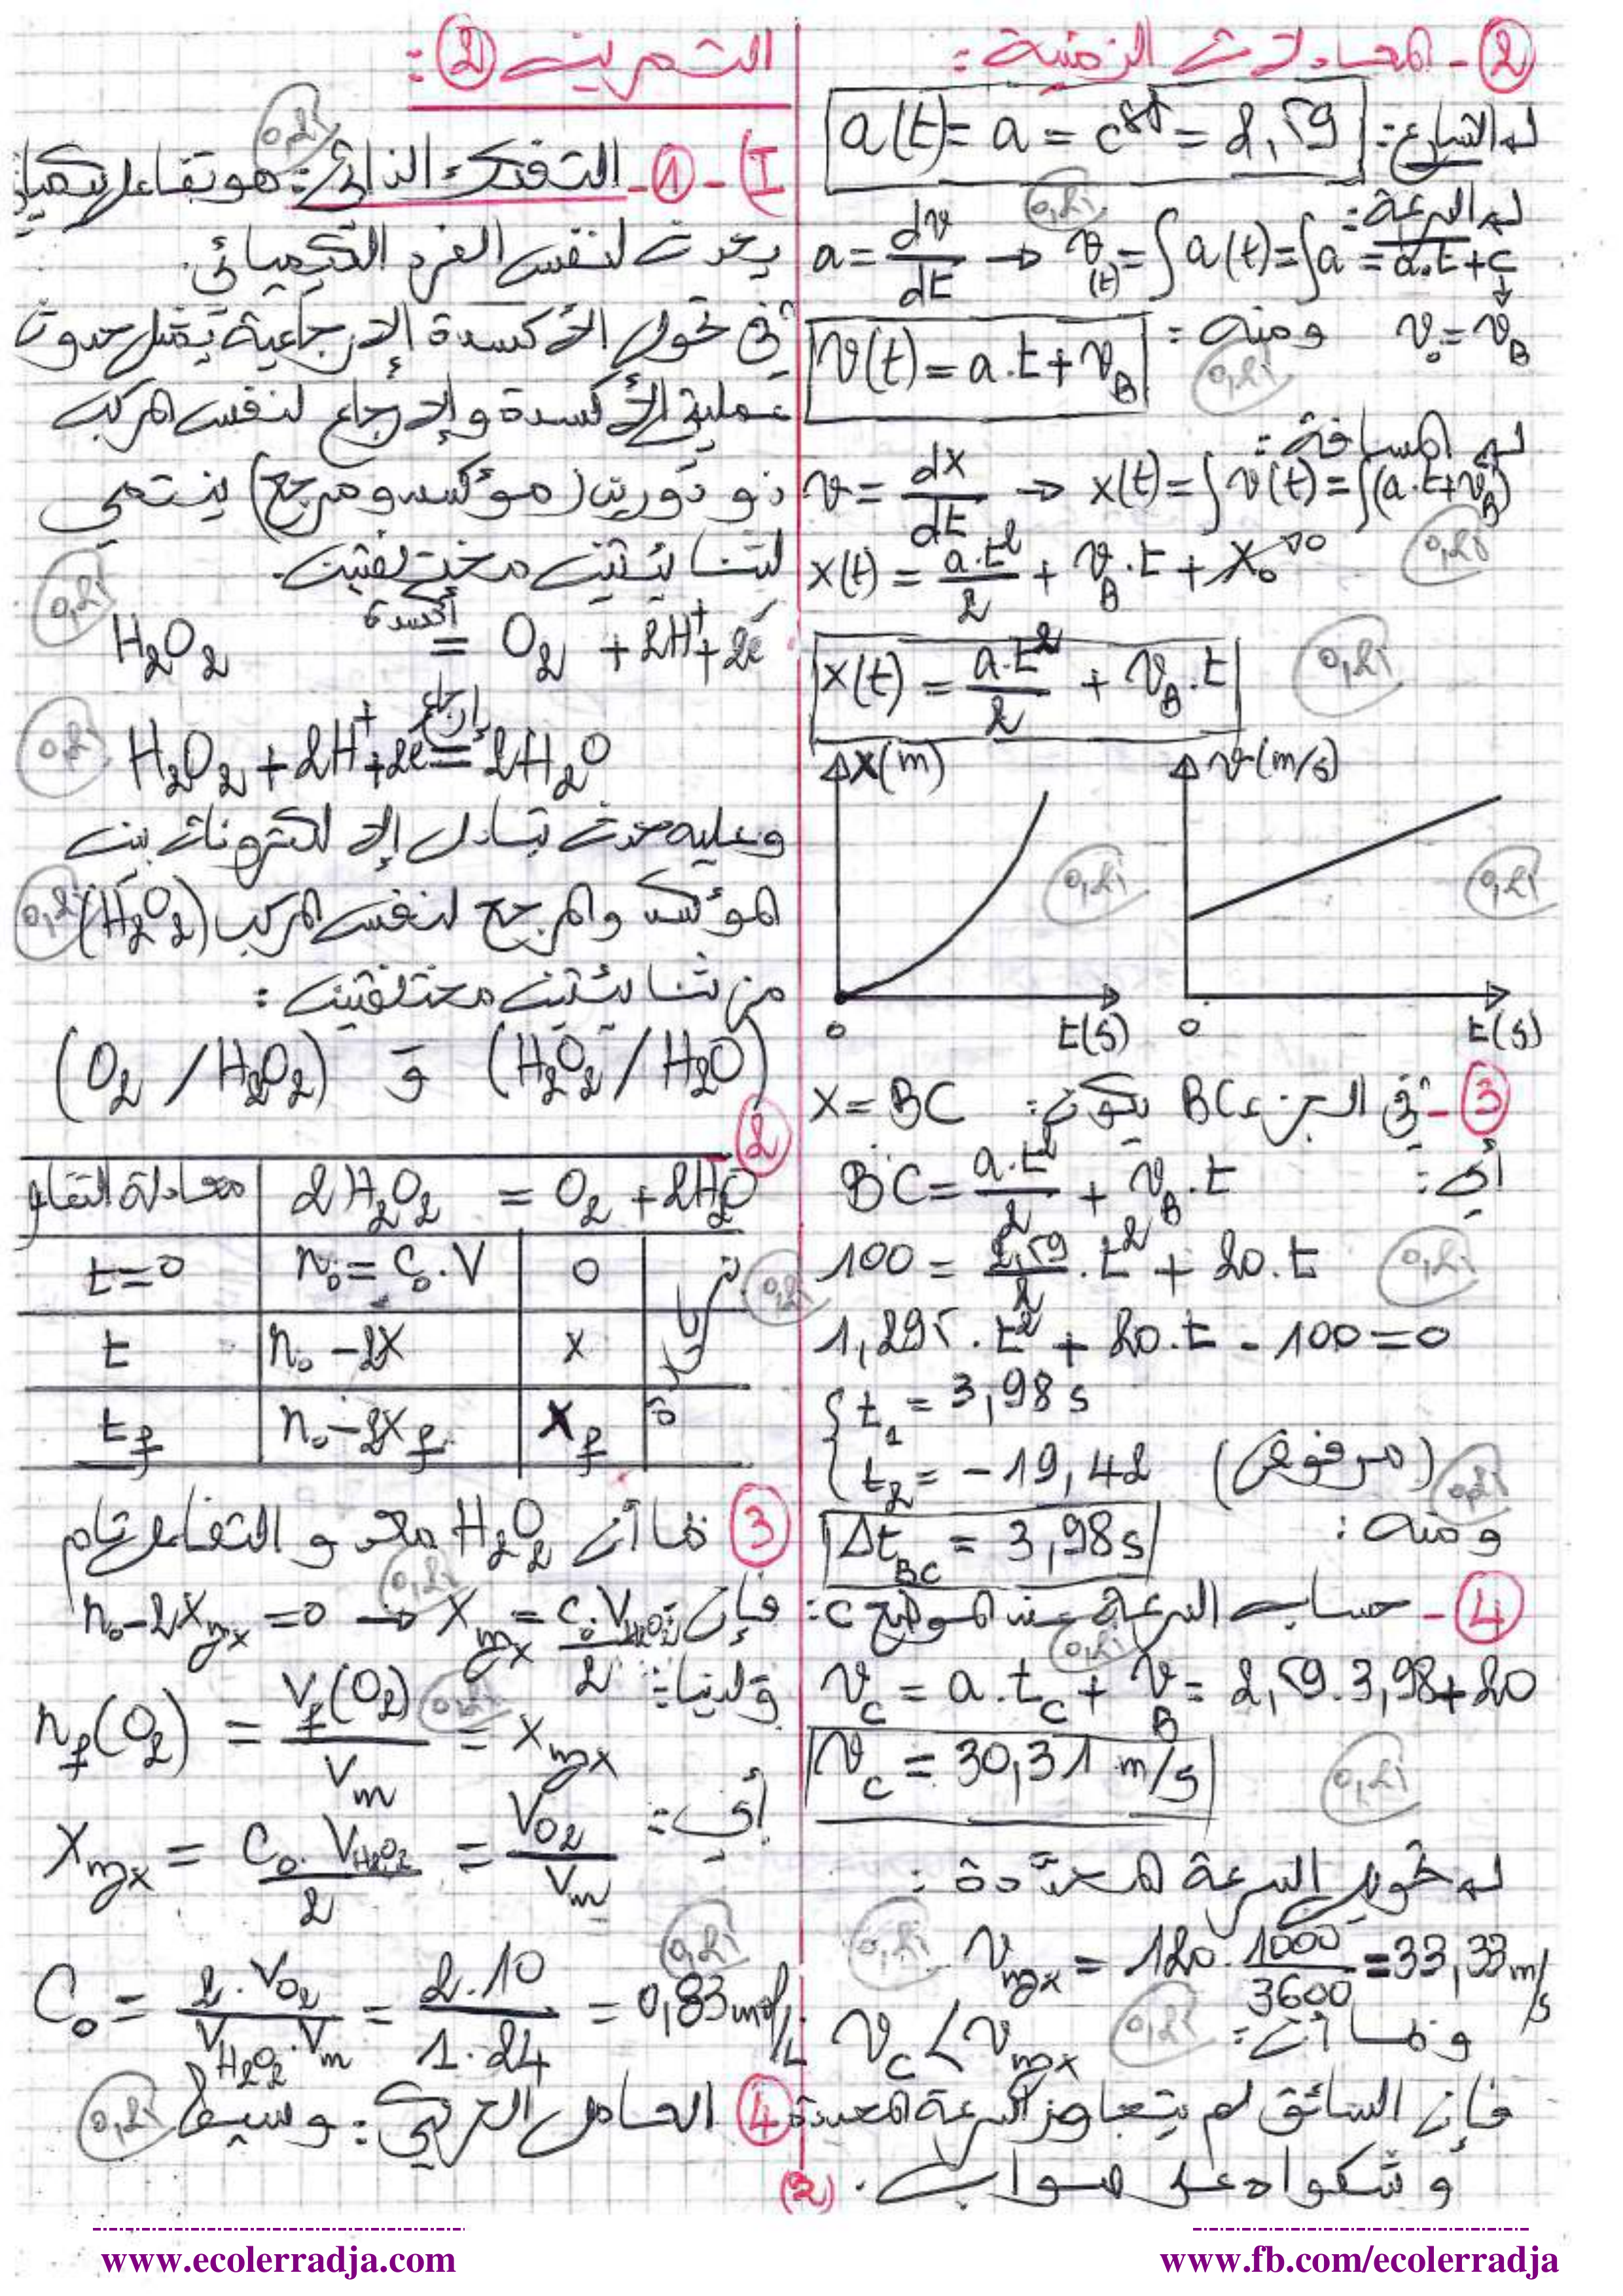 ②- المعادلات الزمنية:
له التسارع: a(t) = a = cst = 2,59
له السرعة:
a = dv/dt → v(t) = ∫a(t) = ∫a = a.t + c
v₀ = v_B ومنه: 0,25
v(t) = a.t + v_B
له المسافة:
v = dx/dt → x(t) = ∫v(t) = ∫(a.t + v_B)
x(t) = a.t²/2 + v_B.t + x₀ →0 0,25
x(t) = a.t²/2 + v_B.t 0,25
x(m) v(m/s)
0,25 0,25
0 t(s) 0 t(s)
③- في الجزء BC يكون: x = BC
أي: BC = a.t²/2 + v_B.t
100 = 2,59/2 .t² + 20.t 0,25
1,295.t² + 20.t - 100 = 0
t₁ = 3,98 s
t₂ = -19,42 (مرفوض) 0,25
ومنه: Δt_BC = 3,98 s
④- حساب السرعة عند الموضع C:
0,25
v_C = a.t_C + v_B = 2,59.3,98 + 20
v_C = 30,31 m/s 0,25
له تحويل السرعة المحددة:
0,25 v_max = 120.1000/3600 = 33,33 m/s
وبما أن: 0,25 v_C < v_max
فإن السائق لم يتجاوز السرعة المحددة
و شكواه على صواب.
التمرين ②:
I)-①- التفكك الذاتي: هو تفاعل كيميائي 0,25
يحدث لنفس الفرد الكيميائي.
في تحول الأكسدة الإرجاعية يمثل حدوث
عمليتي الأكسدة والإرجاع لنفس المركب
ذو دورين (مؤكسد ومرجع) ينتمي
لثنائيتين مختلفتين.
0,25
H₂O₂ أكسدة = O₂ + 2H⁺ + 2e⁻
0,25 H₂O₂ + 2H⁺ + 2e⁻ إرجاع = 2H₂O
وعليه حدث تبادل الإلكترونات بين
المؤكسد والمرجع لنفس المركب (H₂O₂) 0,25
من ثنائيتين مختلفتين:
(H₂O₂/H₂O) و (O₂/H₂O₂)
②
معادلة التفاعل 2H₂O₂ = O₂ + 2H₂O
t=0 n₀ = C₀.V 0 بزيادة 0,25
t n₀ - 2x x
t_f n₀ - 2x_f x_f
③ بما أن H₂O₂ محد و التفاعل تام
0,25
فإن n₀ - 2x_max = 0 → x_max = C₀.V_H₂O₂/2
ولدينا: n_f(O₂) = V_f(O₂)/V_m = x_max 0,25
أي: x_max = C₀.V_H₂O₂/2 = V_O₂/V_m
0,25
C₀ = 2.V_O₂/V_H₂O₂.V_m = 2.10/1.24 = 0,83 mol/L
④ العامل الحركي: وسيط 0,25
(2)
www.ecolerradja.com
www.fb.com/ecolerradja